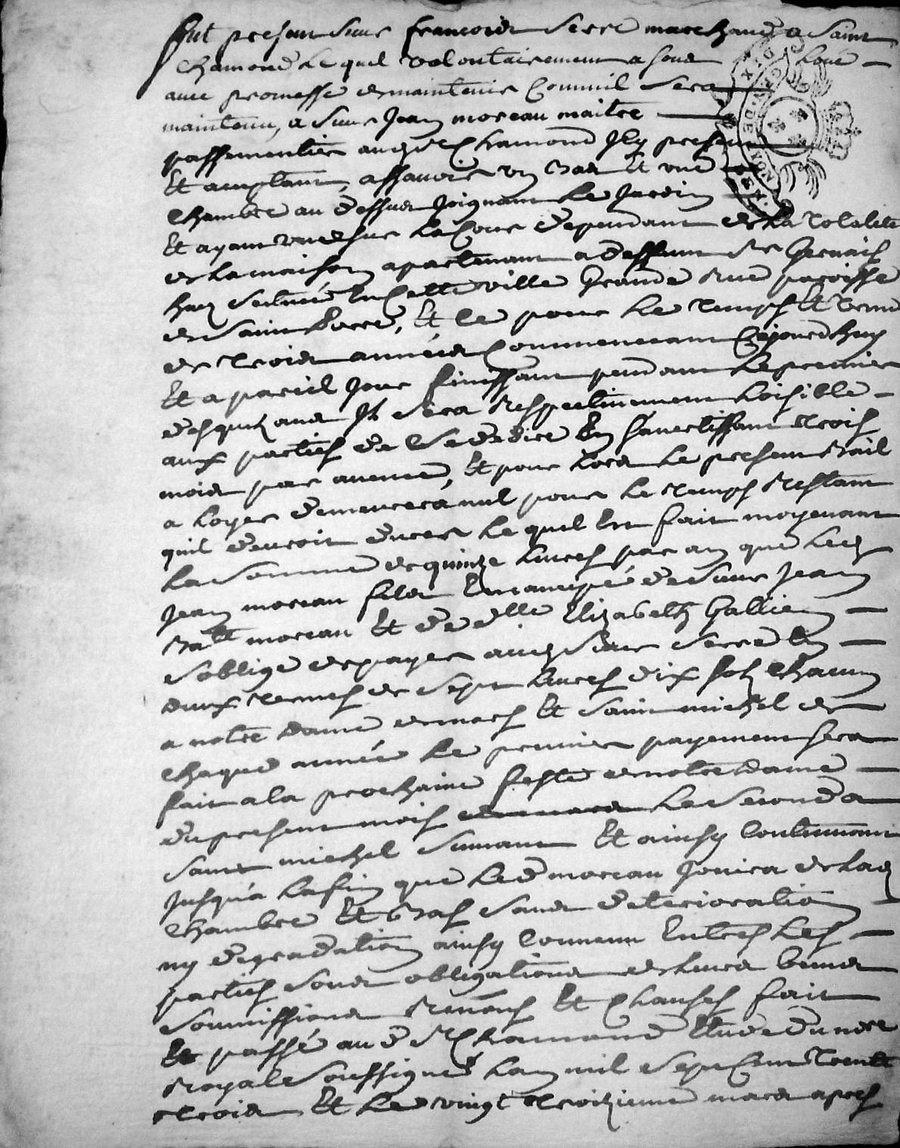 fut present sieur françois serre marchand a saint
chamond lequel volontairement a sous loué
avec promesse de maintenir comme il sera
maintenu, a sieur jean moreau maitre
passementier aud st chamond jcy present
et acceptant, assavoir un bas et une
chambre au dessus joignant le jardin
et ayant vue sur la cour dependant de la totalité
de la maison apartenant a deffunt sr gervais
située en cette ville grande rue paroisse
de saint pierre, et ce pour le temps et terme
de trois années commencant cejourdhuy
et a pareil jour finissant pendant le premier
desquels ans jl sera respectivement loisible
aux parties de se dedire en s'avertissant trois
mois par avance, et pour lors le present bail
a loyer demeurera nul pour le temps restant
quil devroit durer lequel est fait moyenant
la somme de quinze livres par an que led
jean moreau fils emancipé de sieur jean
batt moreau et de dlle elizabeth gallien
s'oblige de payer aud sieur serre en
deux termes de sept livres dix sols chacun
a notre dame de mars et saint michel de
chaque année le premier payement sera
fait a la prochaine feste de notre dame
du present mois de mars le second a
saint michel suivant et ainsy continuant
jusqu'a la fin que led moreau jouira de lad
chambre et bas sans deterioration
ny degradation ainsy convenu entre les
parties sous obligations de leurs biens
soumissions renons et clauses fait
et passé aud st chamond etude du nore
royal soussigné lan mil sept cent trente
trois et le vingt troizieme mars apres